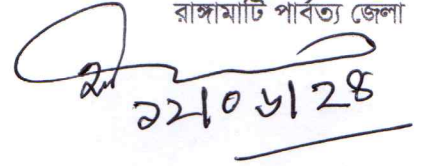 রাঙ্গামাটি পার্বত্য জেলা
১২/০৬/২৪